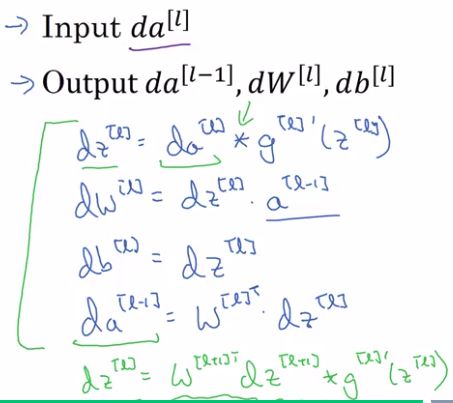 → Input da^[l]
→ Output da^[l-1], dW^[l], db^[l]
dz^[l] = da^[l] * g^[l]'(z^[l])
dw^[l] = dz^[l] · a^[l-1]
db^[l] = dz^[l]
da^[l-1] = w^[l]T · dz^[l]
dz^[l] = w^[l+1]T dz^[l+1] * g^[l]'(z^[l])